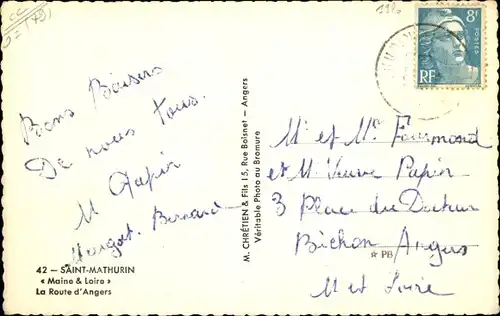 Bons Baisers
De nous tous.
M Papin
Margot. Bernard
42 — SAINT-MATHURIN
« Maine & Loire »
La Route d'Angers
M. CHRÉTIEN & Fils 15, Rue Boisnet — Angers
Véritable Photo au Bromure
8F
POSTES
RF
Mr et Me Fourmond
et M. Veuve Papin
3 Place du Docteur
Bichon Angers
☆ PB
M et Loire